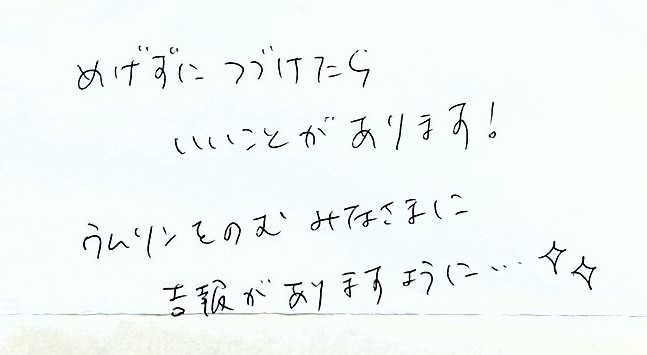 めげずに つづけたら
いいことが あります!
ウムリンをのむ みなさまに
吉報がありますように…